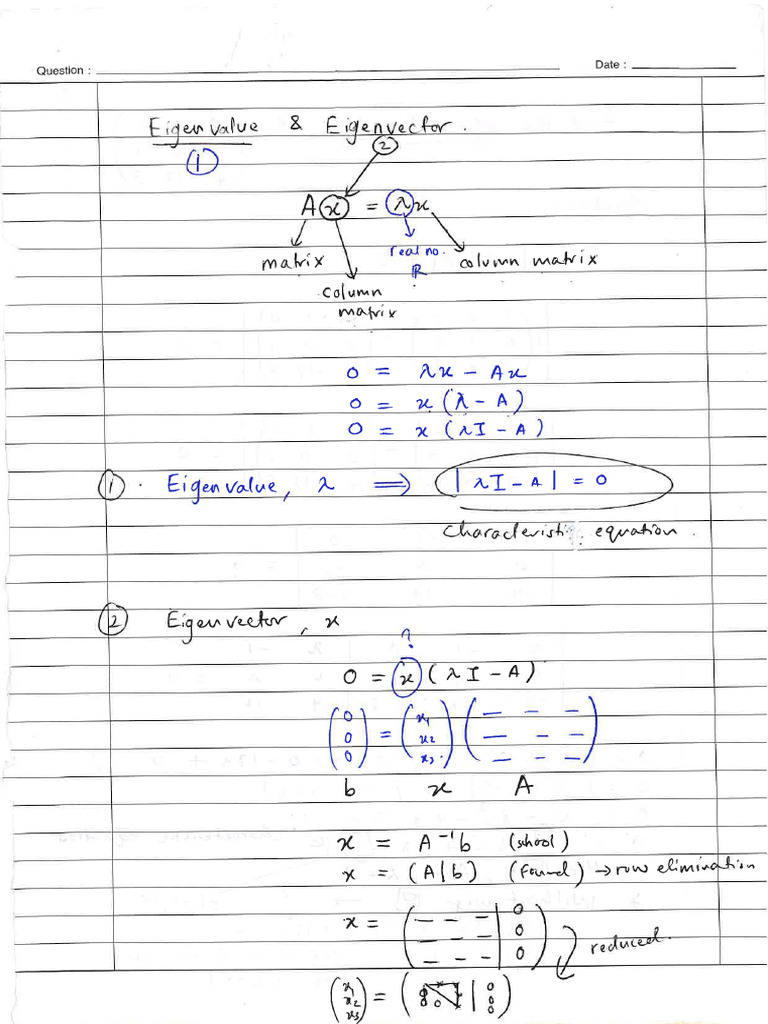 Question : Date :
Eigenvalue & Eigenvector.
① ②
Ax = λx
matrix real no. column matrix
ℝ
column
matrix
0 = λx - Ax
0 = x (λ - A)
0 = x (λI - A)
① . Eigenvalue, λ ⟹ |λI - A| = 0
Characteristic equation.
② Eigenvector, x
?
0 = x (λI - A)
(0 0 0) = (x1 x2 x3) (— — — — — — — — —)
b x A
x = A⁻¹b (school)
x = (A|b) (Found) → row elimination
x = (— — — | 0
— — — | 0
— — — | 0) reduced.
(x1 x2 x3) = ( | 0 0 0)